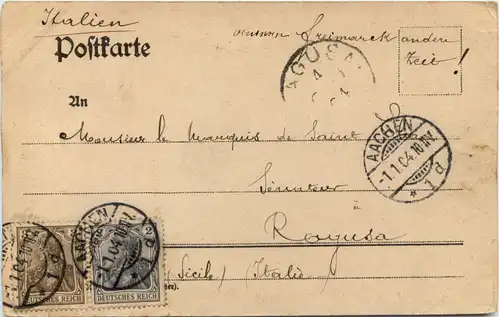 Italien
Postkarte
freimarck andere
Zeit!
RAGUSA
An
Monsieur le Marquis de Saint
AACHEN
1.1.04.10-11V.
1 d
*
Sénateur
à
Ragusa
(Sicile) (Italie)
AACHEN
1.1.04.10-11V.
1 d
DEUTSCHES REICH
DEUTSCHES REICH